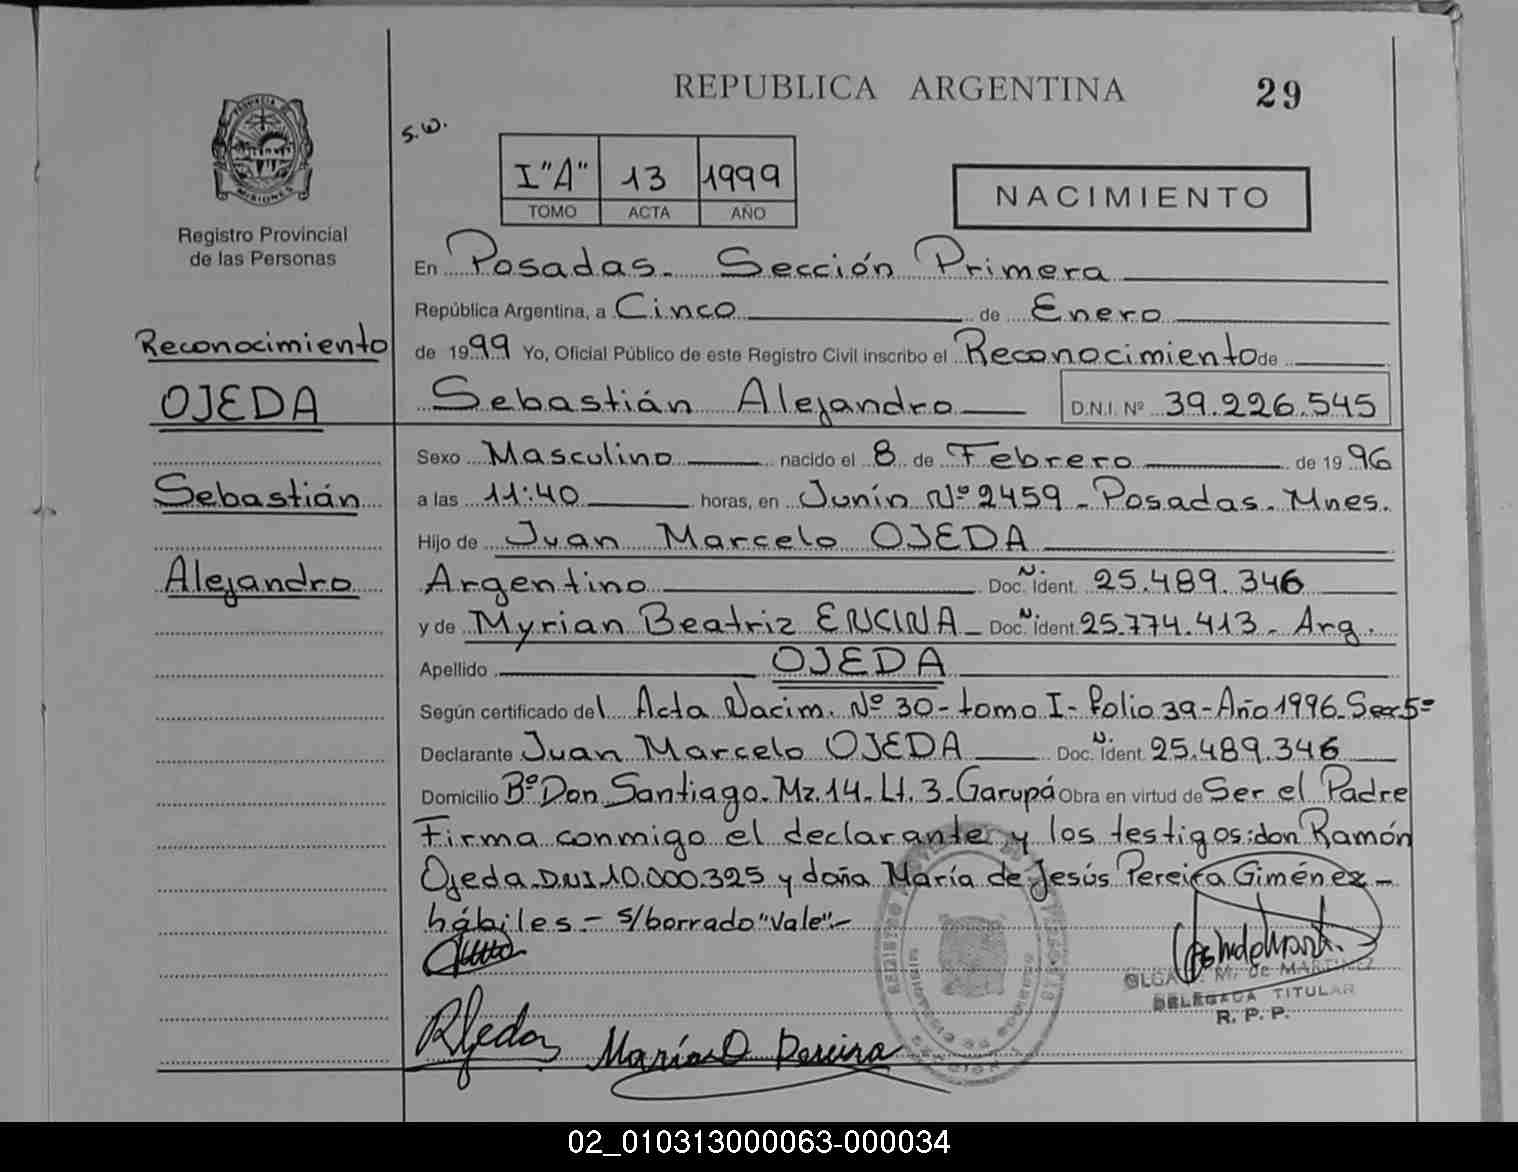 REPUBLICA ARGENTINA 29
s.w.
I"A" 13 1999
TOMO ACTA AÑO
NACIMIENTO
PROVINCIA DE MISIONES
Registro Provincial
de las Personas
Reconocimiento
OJEDA
Sebastián
Alejandro
En Posadas. Sección Primera
República Argentina, a Cinco de Enero
de 1999 Yo, Oficial Público de este Registro Civil inscribo el Reconocimiento de
Sebastián Alejandro D.N.I. Nº 39.226.545
Sexo Masculino nacido el 8 de Febrero de 1996
a las 11:40 horas, en Junín Nº 2459 - Posadas. Mnes.
Hijo de Juan Marcelo OJEDA
Argentino Doc. N. Ident. 25.489.346
y de Myrian Beatriz ENCINA - Doc. N. Ident. 25.774.413 - Arg.
Apellido OJEDA
Según certificado del Acta Nacim. Nº 30 - tomo I - folio 39 - Año 1996 - Secc 5º
Declarante Juan Marcelo OJEDA Doc. N. Ident. 25.489.346
Domicilio Bº Don Santiago. Mz. 14. Lt. 3 - Garupá Obra en virtud de Ser el Padre
Firma conmigo el declarante y los testigos: don Ramón
Ojeda DNI 10.000.325 y doña María de Jesús Pereira Giménez -
hábiles. - s/borrado "Vale" -
OLGA M. de MARTINEZ
DELEGADA TITULAR
R. P. P.
ROjeda María D Pereira
02_010313000063-000034